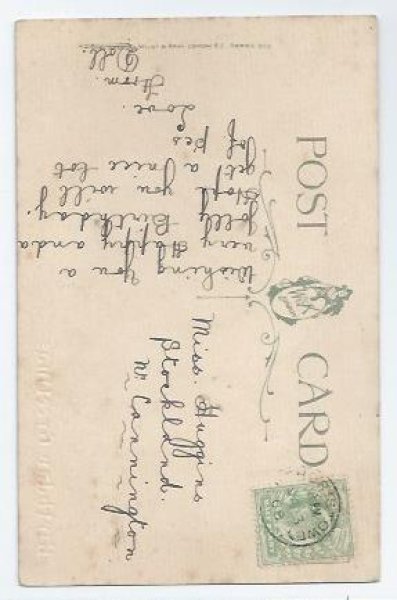 POST CARD
Wishing you a
very Happy and a
jolly Birthday.
Hope you will
get a nice lot
of pcs
Love.
From
Doll.
Miss. Huggins
Stockland.
Nr Cannington